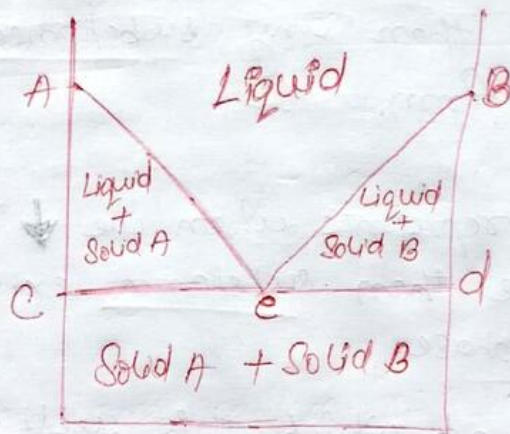 A
Liquid
B
Liquid
+
Solid A
Liquid
+
Solid B
C
e
d
Solid A + Solid B